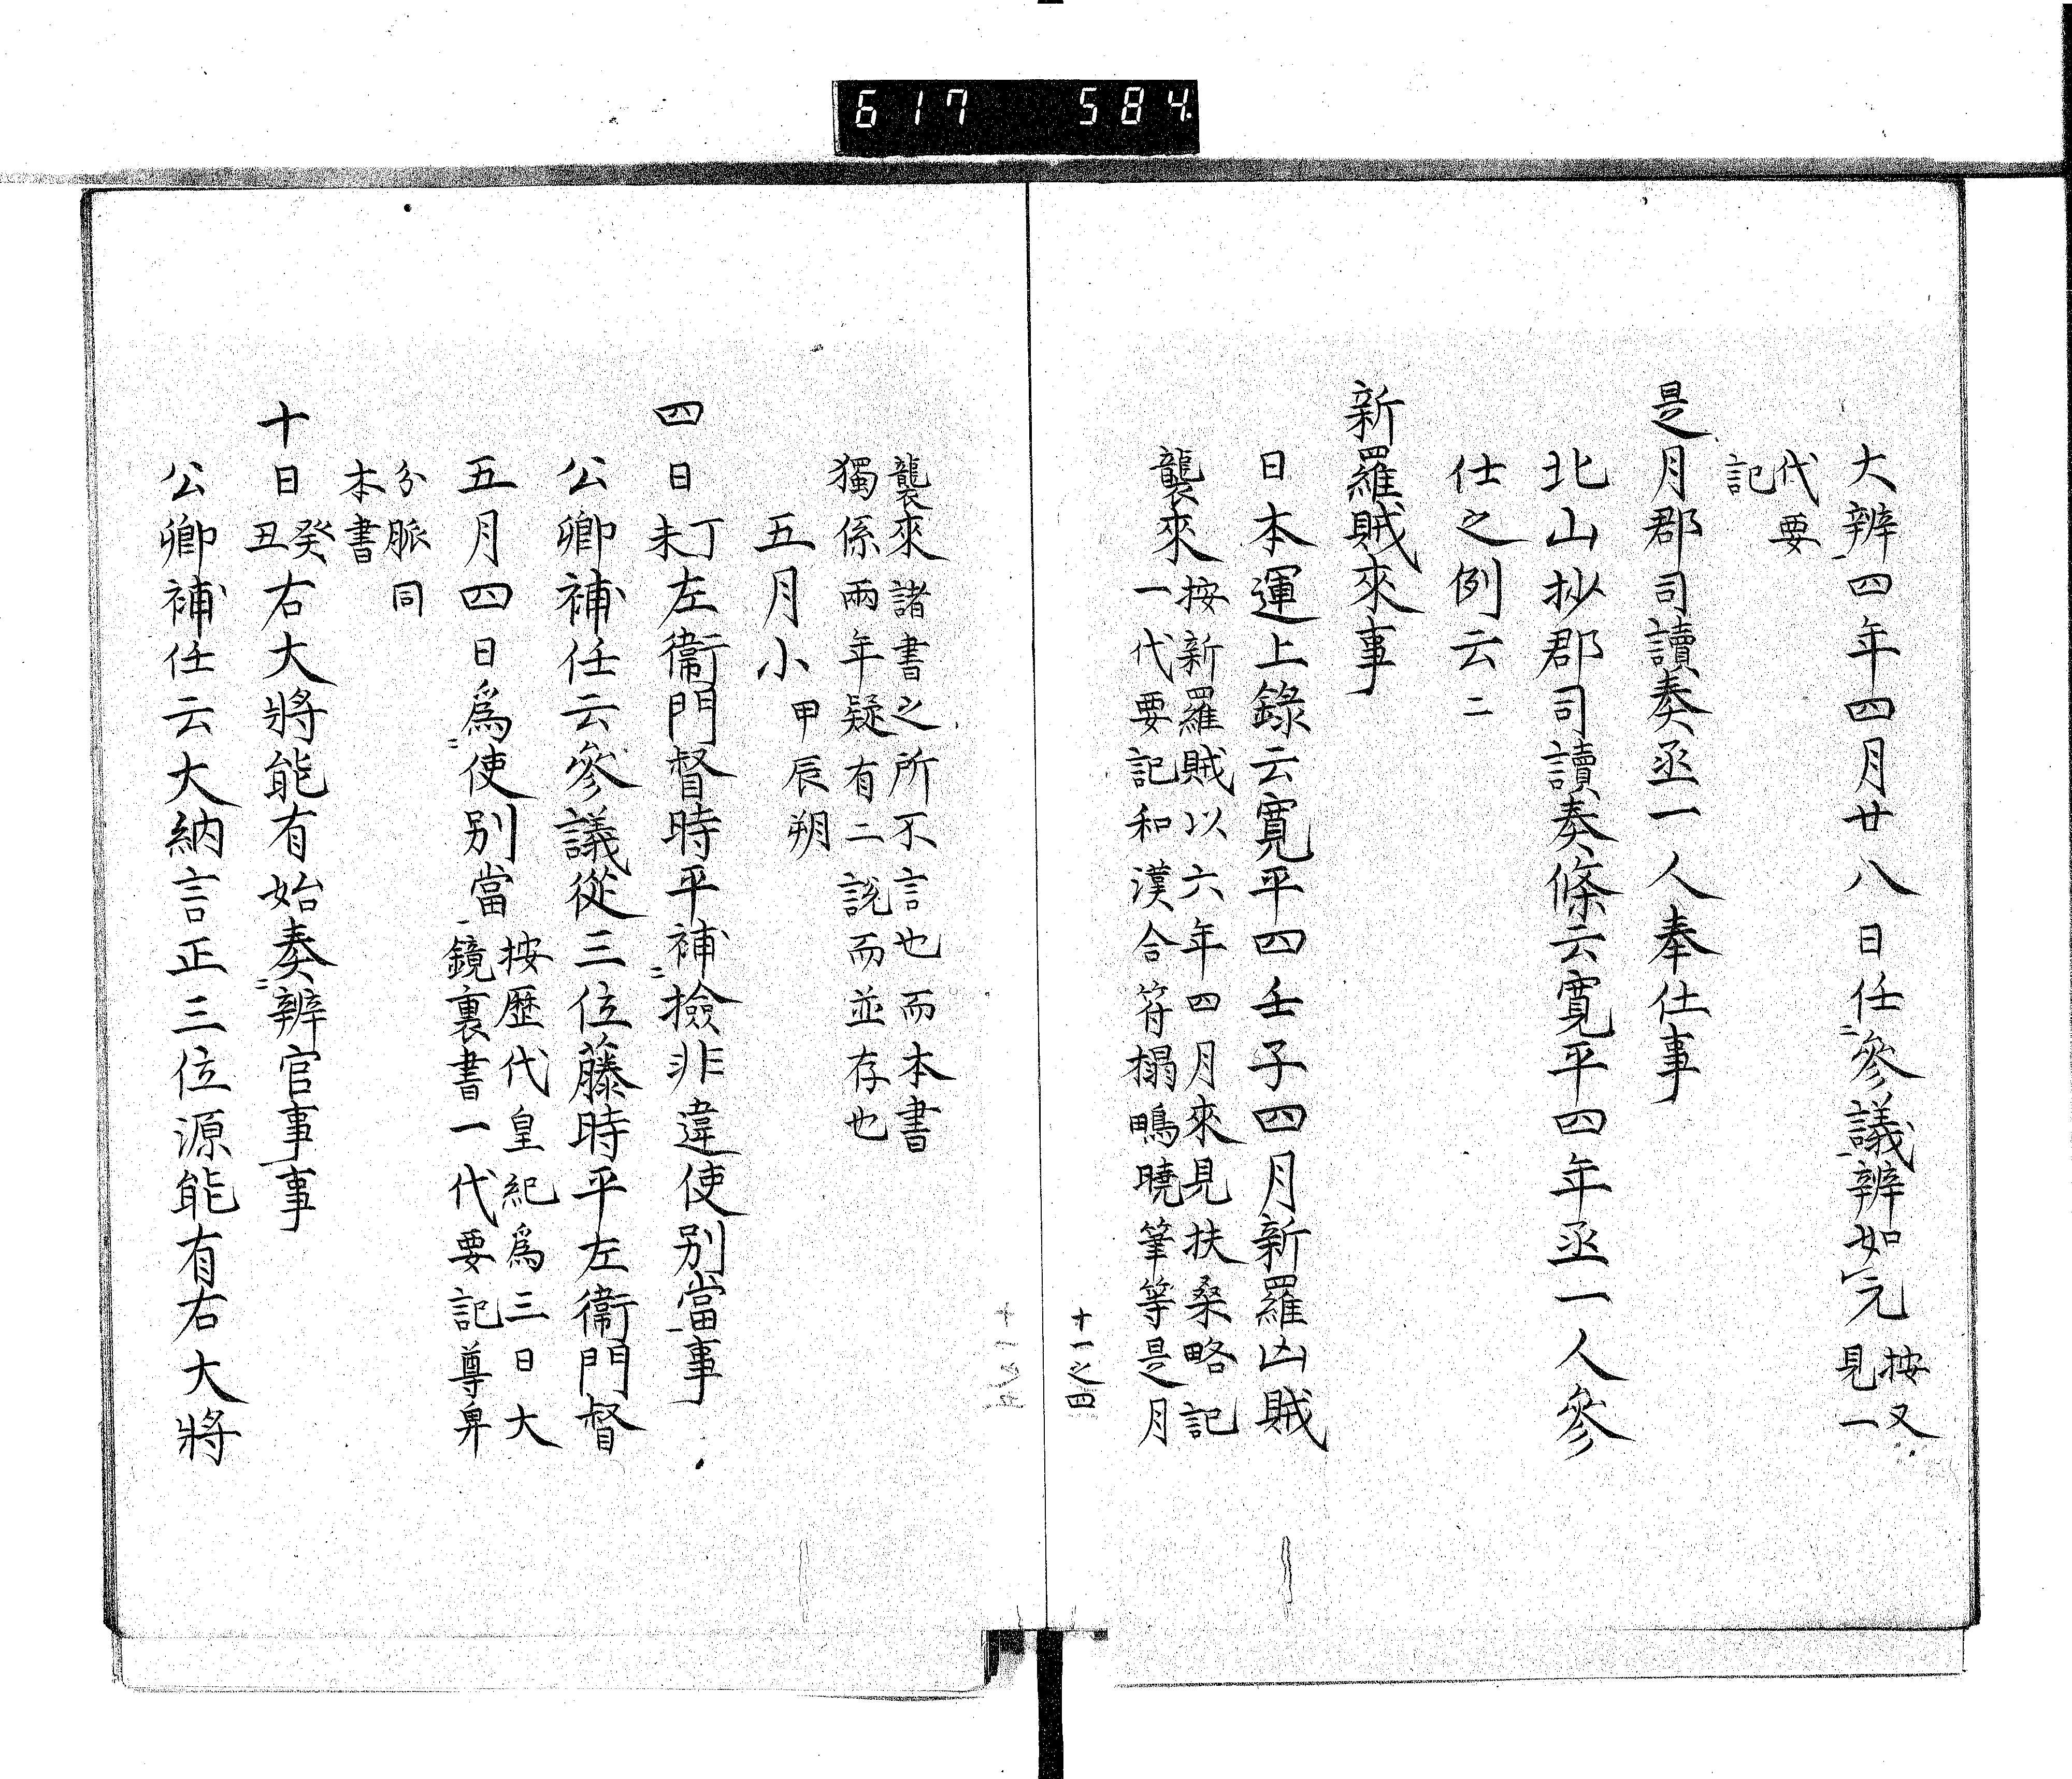 617 584
大辨四年四月廿八日任參議辨如元 按又
見一
代要
記
是月郡司讀奏丞一人奉仕事
北山抄郡司讀奏條云寬平四年丞一人參
仕之例云〻
新羅賊來事
日本運上錄云寬平四壬子四月新羅凶賊
襲來 按新羅賊以六年四月來見扶桑略記
一代要記和漢合符榻鴫曉筆等是月
十一之四
十一之五
襲來諸書之所不言也而本書
獨係兩年疑有二說而並存也
五月小 甲辰朔
四日丁未左衞門督時平補檢非違使別當事
公卿補任云參議從三位藤時平左衞門督
五月四日爲使別當 按歷代皇紀爲三日大
鏡裏書一代要記尊卑
分脈同
本書
十日癸丑右大將能有始奏辨官事事
公卿補任云大納言正三位源能有右大將